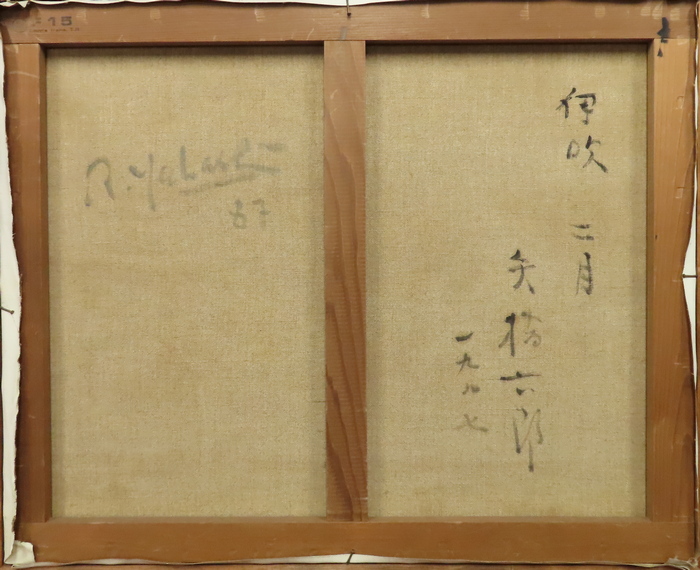 F15
伊吹 二月
矢橋六郎
一九八七
R. Yahashi
87